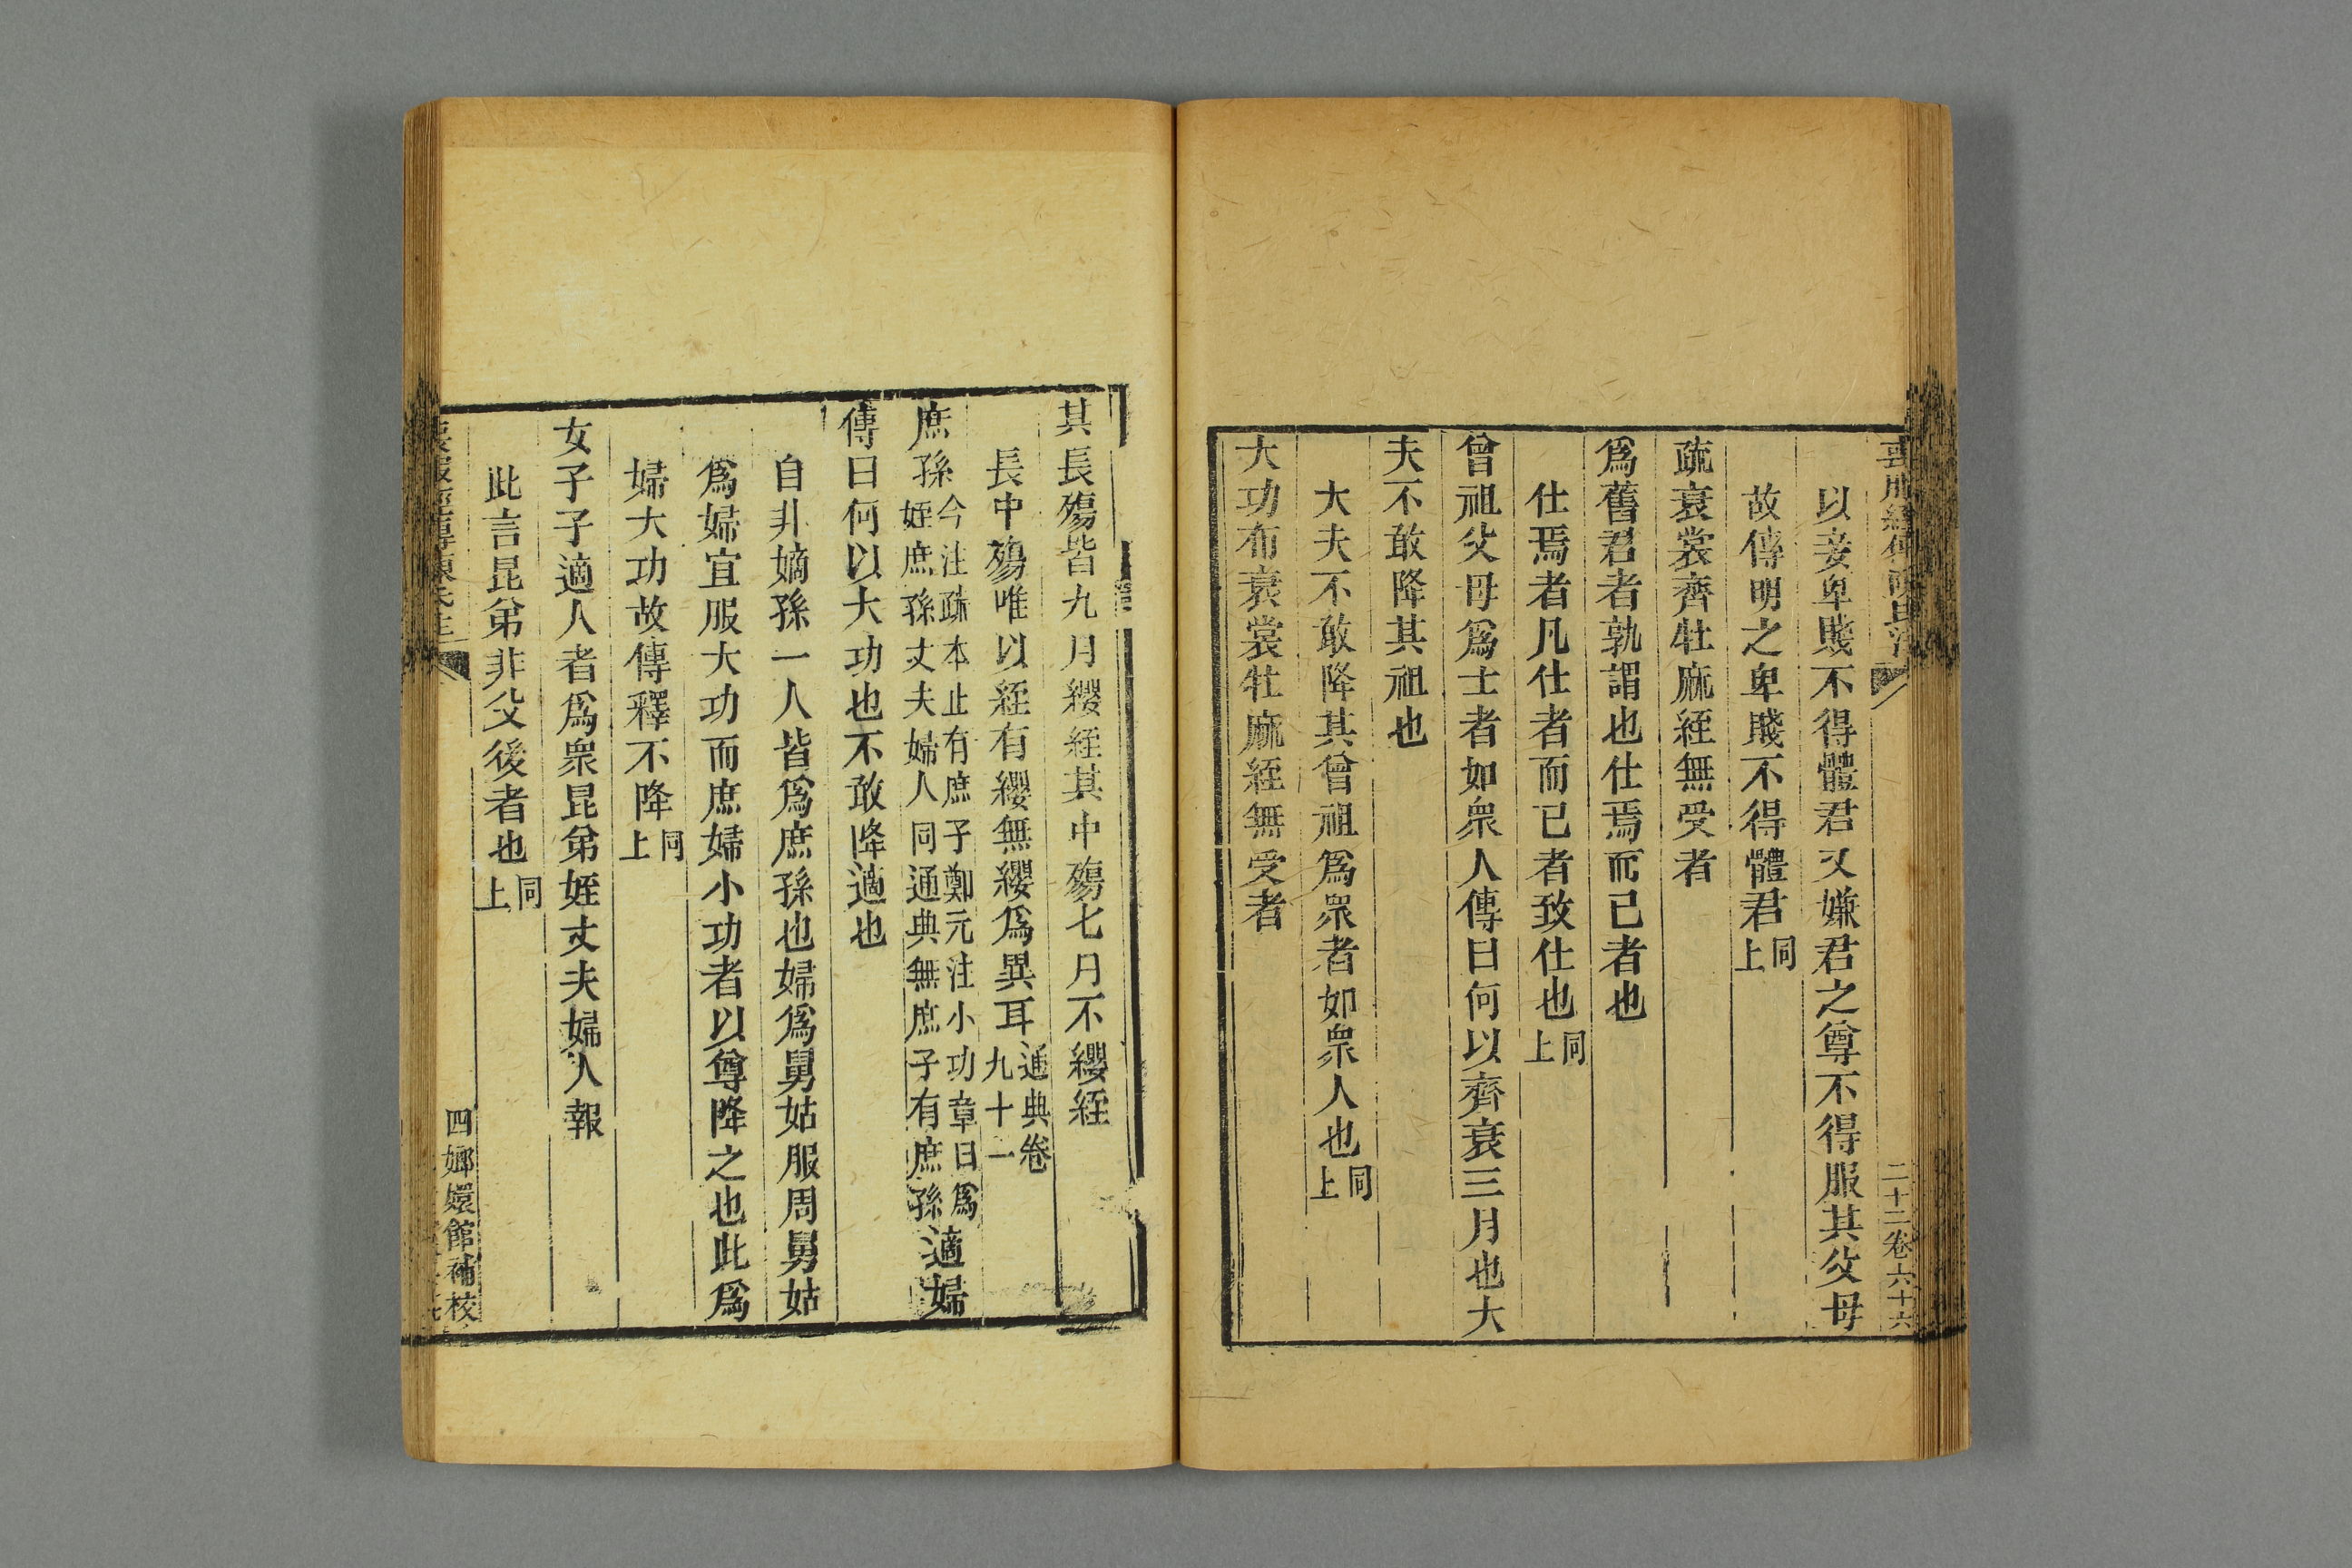 以妾卑賤不得體君又嫌君之尊不得服其父母
故傳明之卑賤不得體君同上
疏衰裳齊牡麻絰無受者
爲舊君者孰謂也仕焉而已者也
仕焉者凡仕者而已者致仕也同上
曾祖父母爲士者如衆人傳曰何以齊衰三月也大
夫不敢降其祖也
大夫不敢降其曾祖爲衆者如衆人也同上
大功布衰裳牡麻絰無受者
二十二卷六十六
其長殤皆九月纓絰其中殤七月不纓絰
長中殤唯以絰有纓無纓爲異耳通典卷九十一
庶孫今注疏本止有庶子鄭元注小功章曰爲姪庶孫丈夫婦人同通典無庶子有庶孫適婦
傳曰何以大功也不敢降適也
自非嫡孫一人皆爲庶孫也婦爲舅姑服周舅姑
爲婦宜服大功而庶婦小功者以尊降之也此爲
婦大功故傳釋不降同上
女子子適人者爲衆昆弟姪丈夫婦人報
此言昆弟非父後者也同上
四嫏嬛館補校